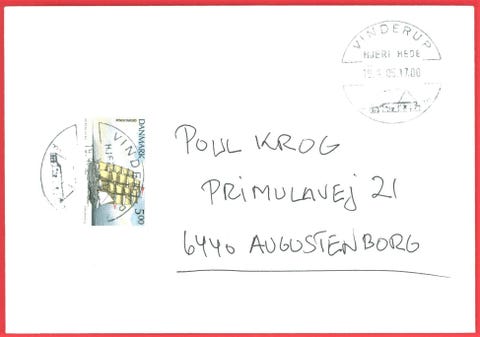 VINDERUP
HJERL HEDE
05.17.00
DANMARK
5.00
VINDERUP
POUL KROG
PRIMULAVEJ 21
6440 AUGUSTENBORG